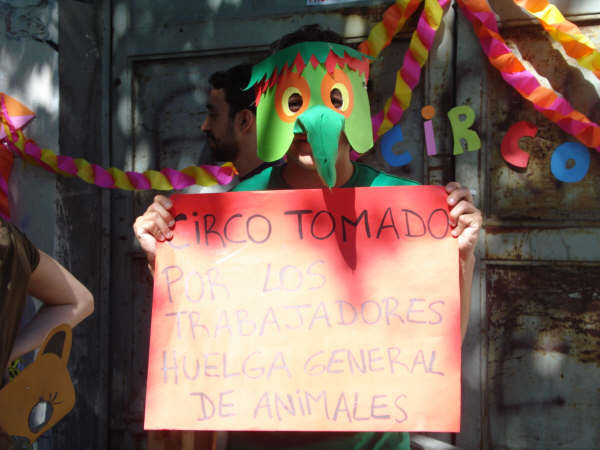 CiRCO
CiRCO TOMADO
POR LOS
TRABAJADORES
HUELGA GENERAL
DE ANiMALES